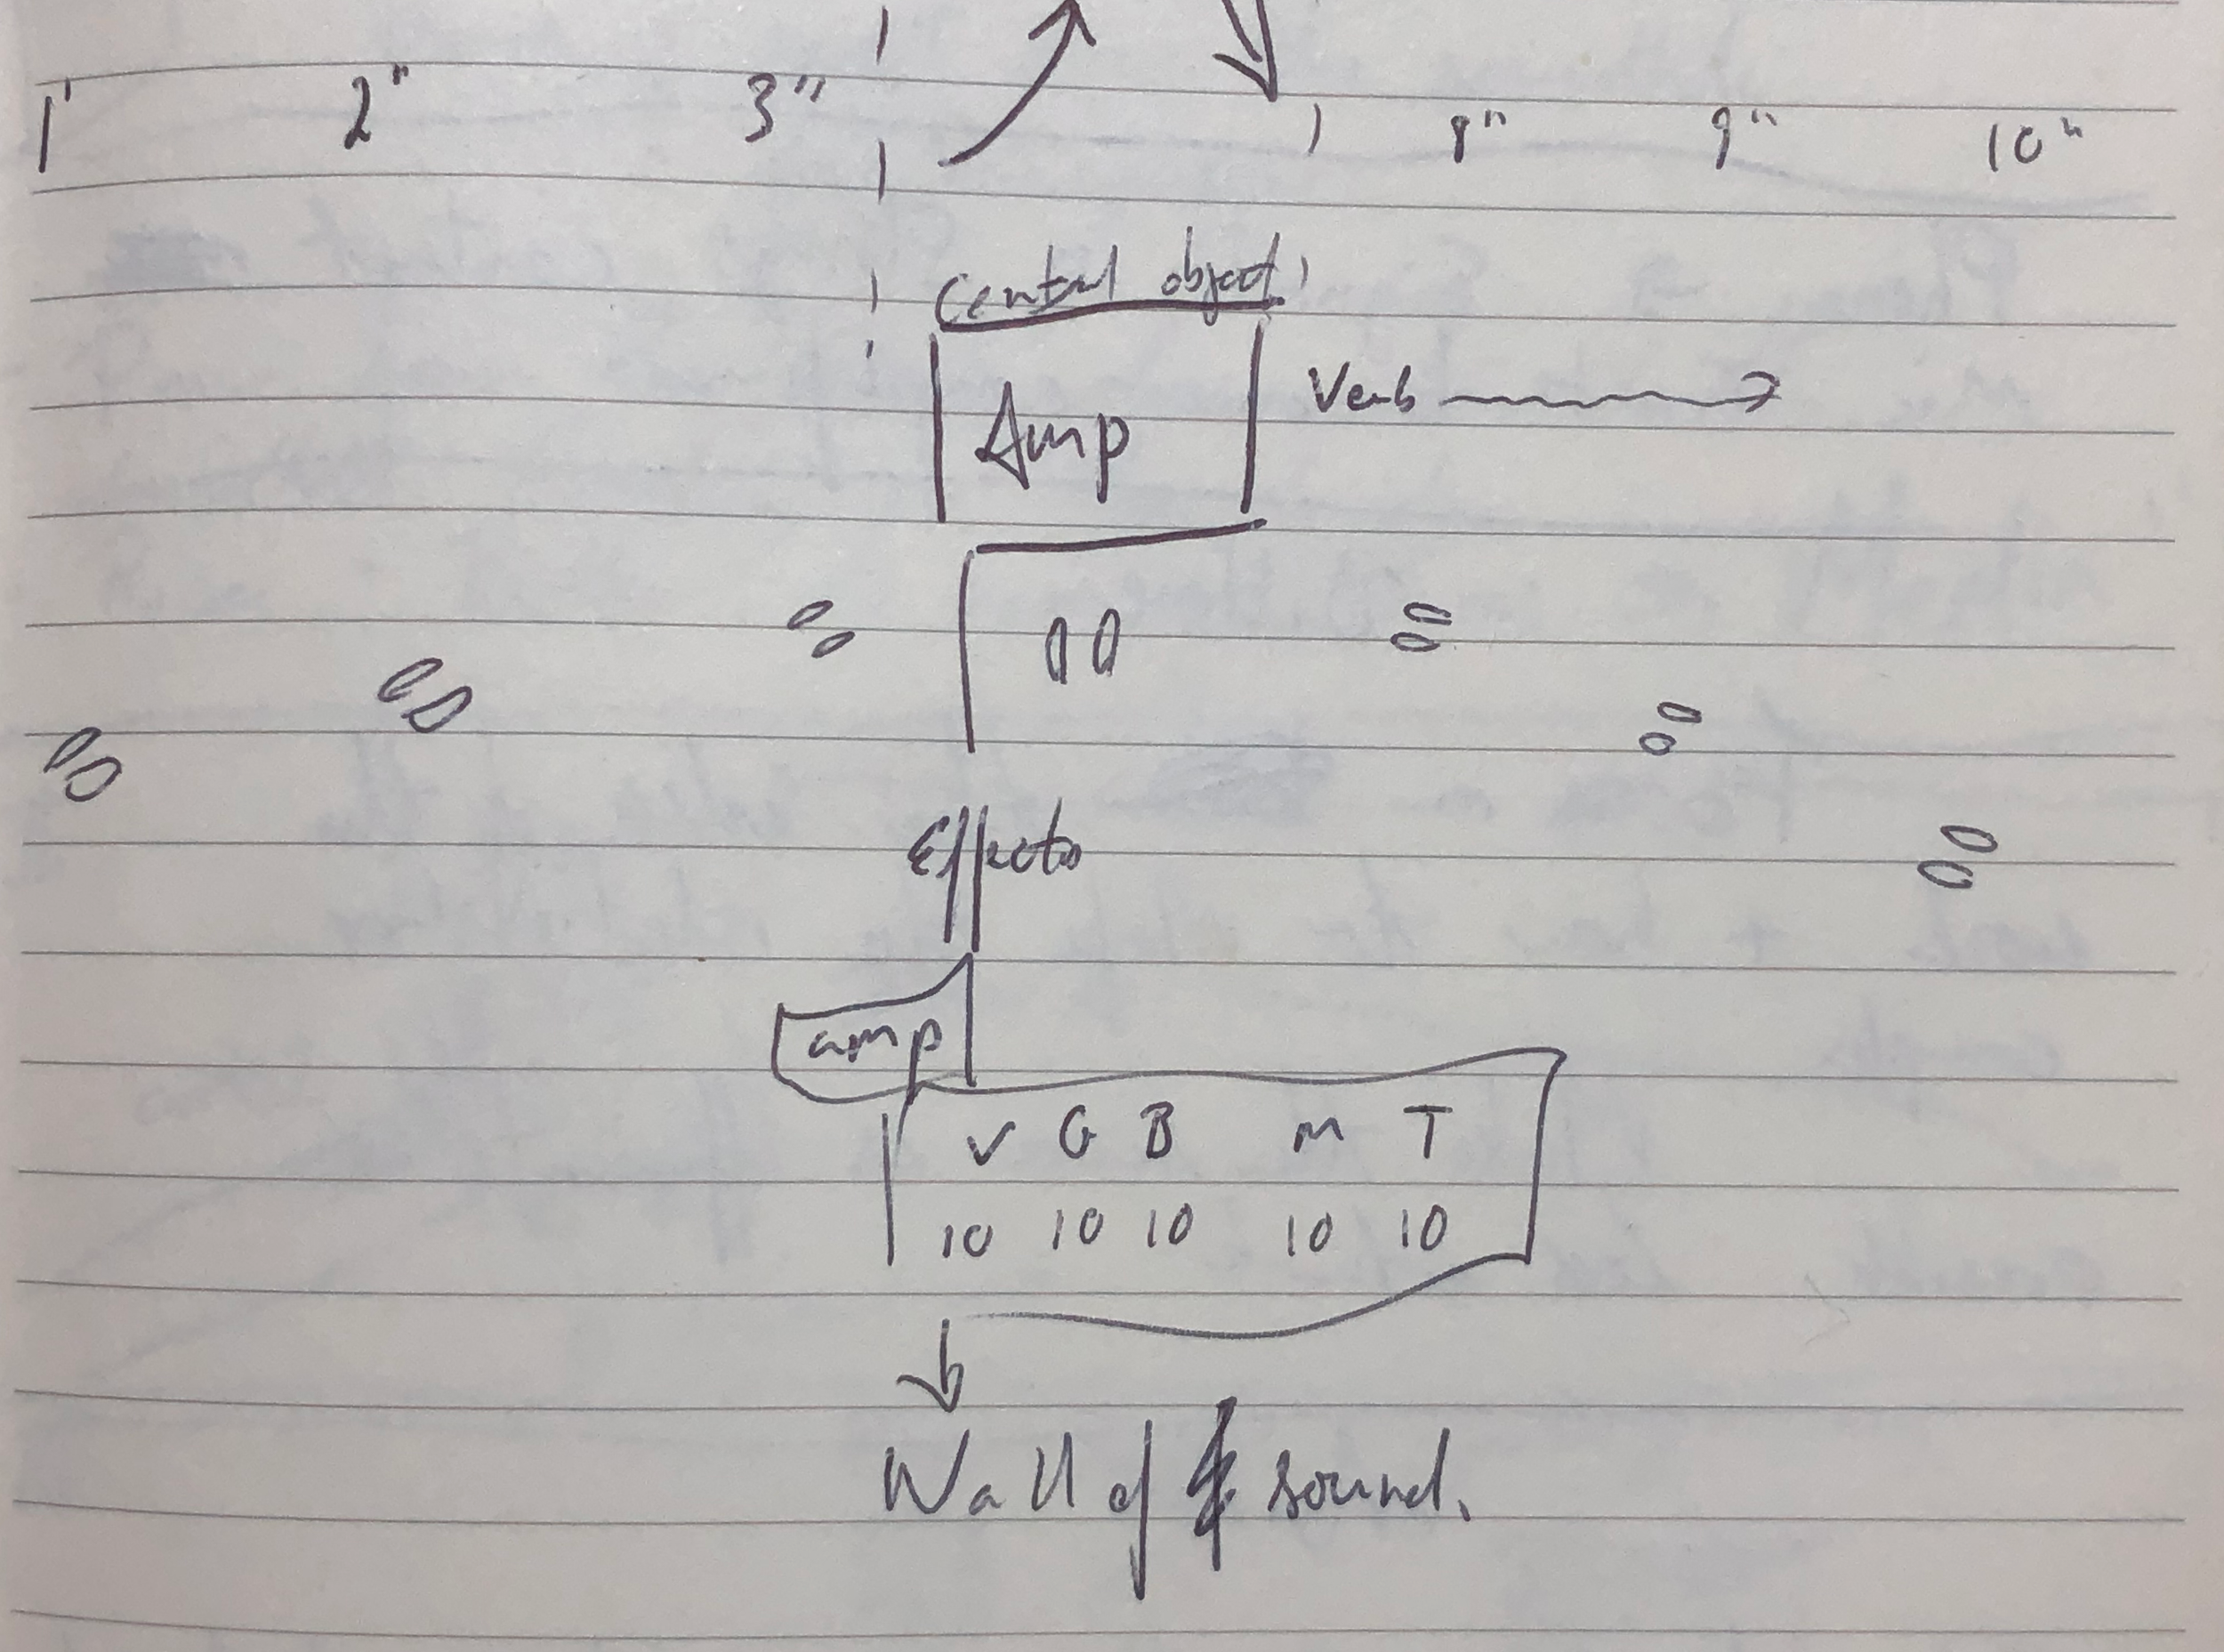 1' 2" 3" 8" 9" 10"
Central object
Amp Verb
Effects
amp
V G B M T
10 10 10 10 10
Wall of sound.